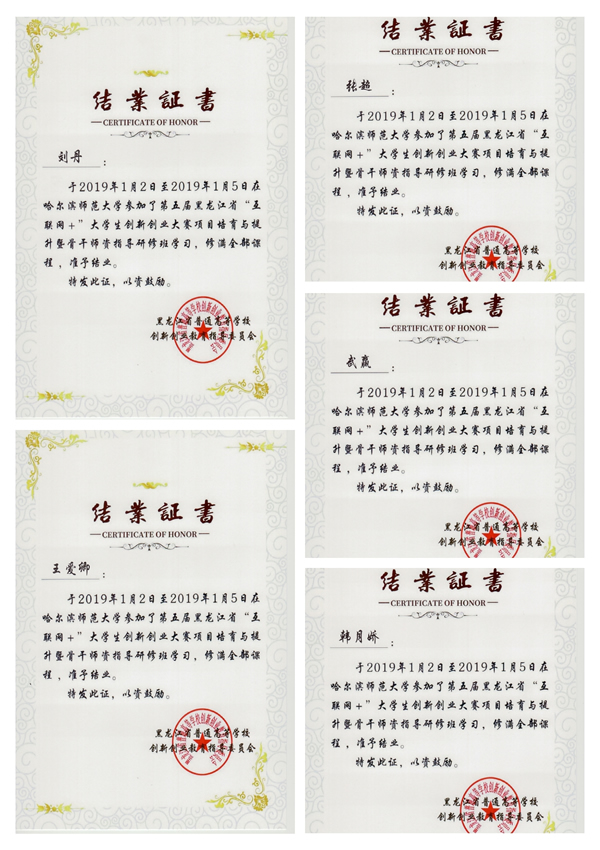 结业证书
CERTIFICATE OF HONOR
刘丹：
于2019年1月2日至2019年1月5日在
哈尔滨师范大学参加了第五届黑龙江省“互
联网+”大学生创新创业大赛项目培育与提
升暨骨干师资指导研修班学习，修满全部课
程，准予结业。
特发此证，以资鼓励。
黑龙江省普通高等学校
创新创业教育指导委员会
结业证书
CERTIFICATE OF HONOR
王爱卿：
于2019年1月2日至2019年1月5日在
哈尔滨师范大学参加了第五届黑龙江省“互
联网+”大学生创新创业大赛项目培育与提
升暨骨干师资指导研修班学习，修满全部课
程，准予结业。
特发此证，以资鼓励。
黑龙江省普通高等学校
创新创业教育指导委员会
结业证书
CERTIFICATE OF HONOR
张超：
于2019年1月2日至2019年1月5日在
哈尔滨师范大学参加了第五届黑龙江省“互
联网+”大学生创新创业大赛项目培育与提
升暨骨干师资指导研修班学习，修满全部课
程，准予结业。
特发此证，以资鼓励。
黑龙江省普通高等学校
创新创业教育指导委员会
结业证书
CERTIFICATE OF HONOR
武赢：
于2019年1月2日至2019年1月5日在
哈尔滨师范大学参加了第五届黑龙江省“互
联网+”大学生创新创业大赛项目培育与提
升暨骨干师资指导研修班学习，修满全部课
程，准予结业。
特发此证，以资鼓励。
黑龙江省普通高等学校
创新创业教育指导委员会
结业证书
CERTIFICATE OF HONOR
韩月娇：
于2019年1月2日至2019年1月5日在
哈尔滨师范大学参加了第五届黑龙江省“互
联网+”大学生创新创业大赛项目培育与提
升暨骨干师资指导研修班学习，修满全部课
程，准予结业。
特发此证，以资鼓励。
黑龙江省普通高等学校
创新创业教育指导委员会